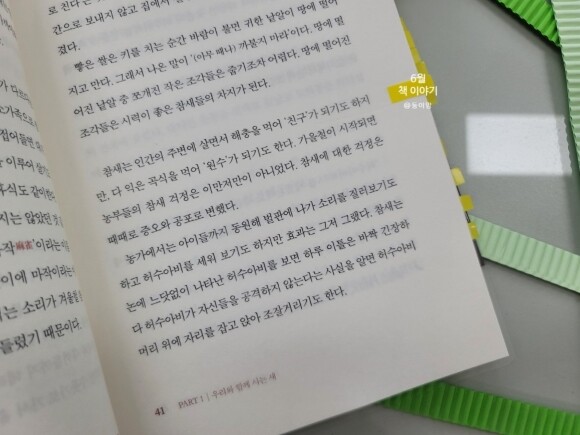 간으로 보내지 않고 집에서
졌다.
빻은 쌀은 키를 치는 순간 바람이 불면 귀한 낱알이 땅에 떨어
지고 만다. 그래서 나온 말이 '(아무 때나) 까불지 마라'이다. 땅에 떨
어진 낱알 중 쪼개진 작은 조각들은 줍기조차 어렵다. 땅에 떨어진
조각들은 시력이 좋은 참새들의 차지가 된다.
참새는 인간의 주변에 살면서 해충을 먹어 '친구'가 되기도 하지
만, 다 익은 곡식을 먹어 '원수'가 되기도 한다. 가을철이 시작되면
농부들의 참새 걱정은 이만저만이 아니었다. 참새에 대한 걱정은
때때로 증오와 공포로 변했다.
농가에서는 아이들까지 동원해 벌판에 나가 소리를 질러보기도
하고 허수아비를 세워 보기도 하지만 효과는 그저 그랬다. 참새는
논에 느닷없이 나타난 허수아비를 보면 하루 이틀은 바짝 긴장하
다 허수아비가 자신들을 공격하지 않는다는 사실을 알면 허수아비
머리 위에 자리를 잡고 앉아 조잘거리기도 한다.
41 PART 1 | 우리와 함께 사는 새
6월
책 이야기
이에 마작이라는
는 소리가 겨울
들렸기 때문이다.